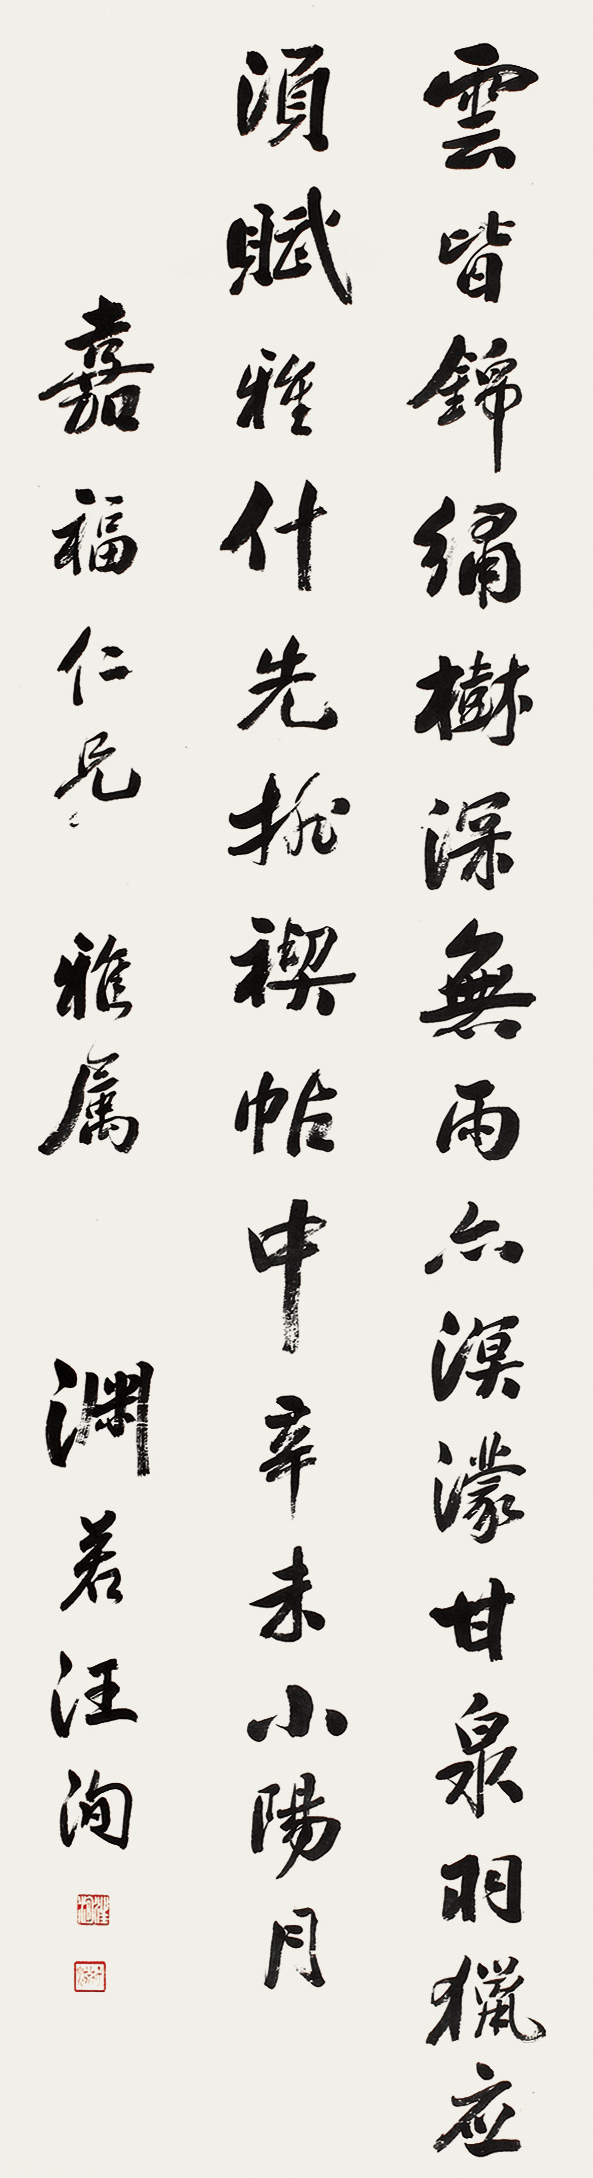 雲皆錦繡樹深無雨亦溟濛甘泉羽獵应
須賦雅什先排禊帖中辛未小陽月
嘉福仁兄 雅属 渊若汪洵